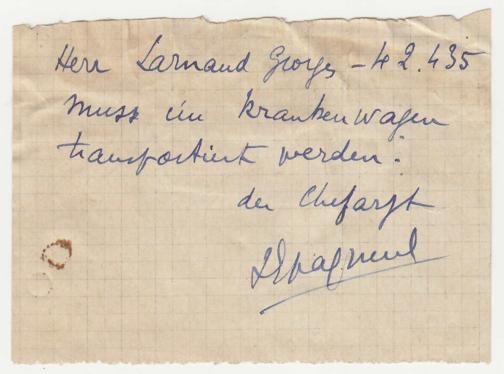 Herr Larnaud Georges – 42.435
muss im Krankenwagen
transportiert werden.
der Chefarzt